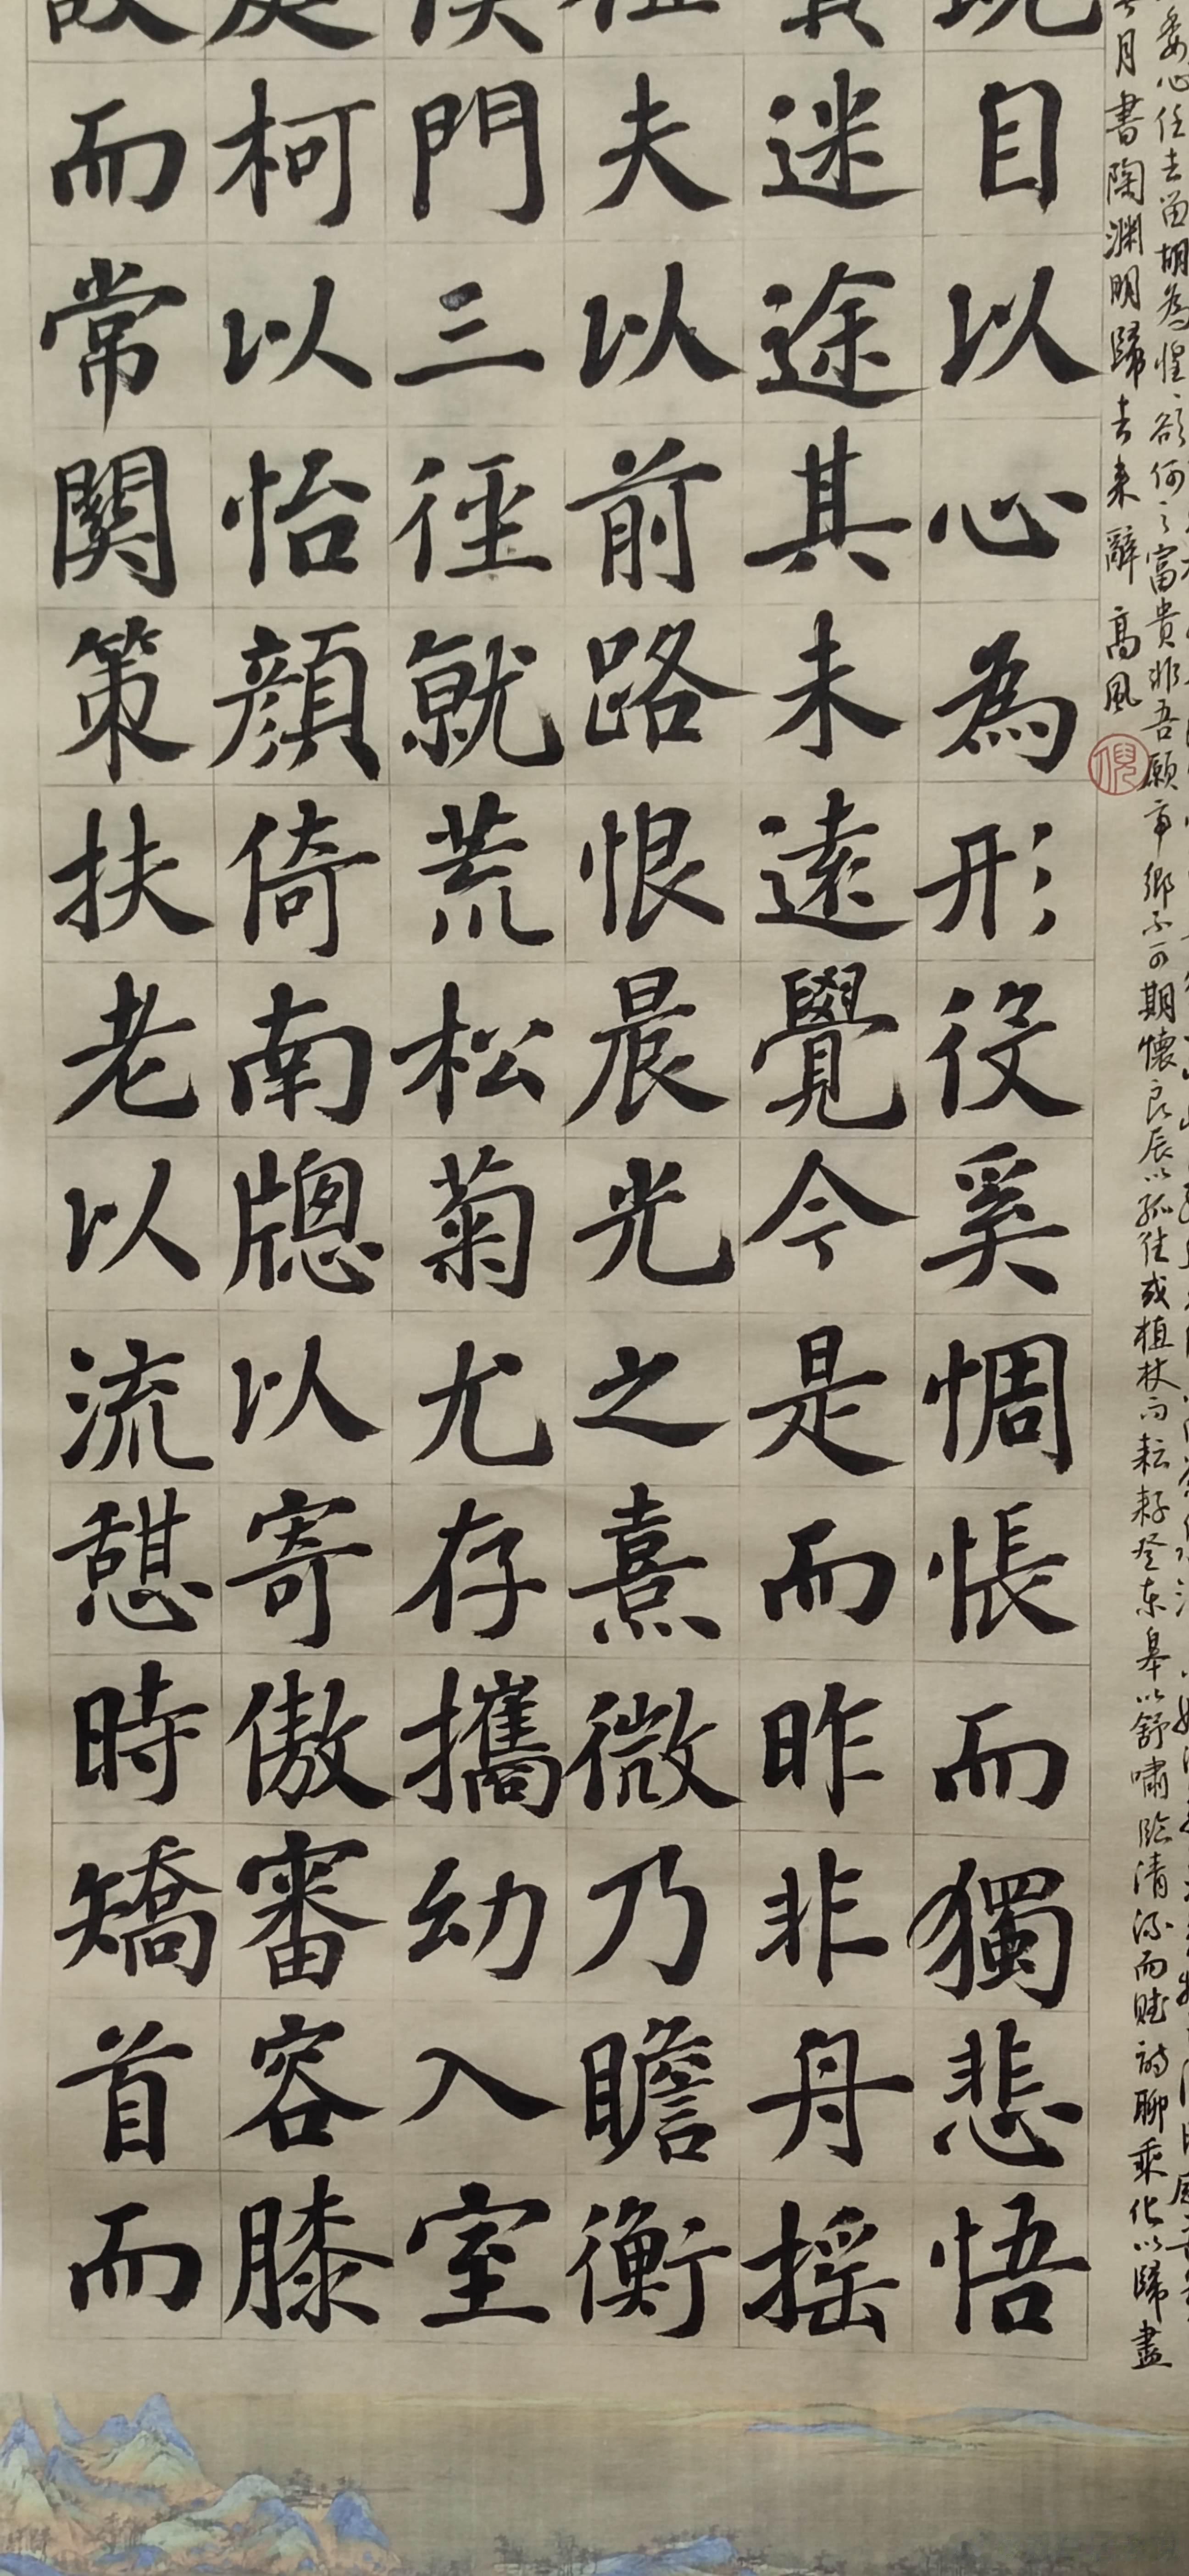 委心任去留胡為惶〻欲何之富貴非吾願帝鄉不可期懷良辰以孤往或植杖而耘耔登東皋以舒嘯臨清流而賦詩聊乘化以歸盡
月書陶淵明歸去來辭 高風
倪
目以心為形役奚惆悵而獨悲悟
迷途其未遠覺今是而昨非舟摇
夫以前路恨晨光之熹微乃瞻衡
門三徑就荒松菊尤存攜幼入室
柯以怡顏倚南牕以寄傲審容膝
而常關策扶老以流憩時矯首而